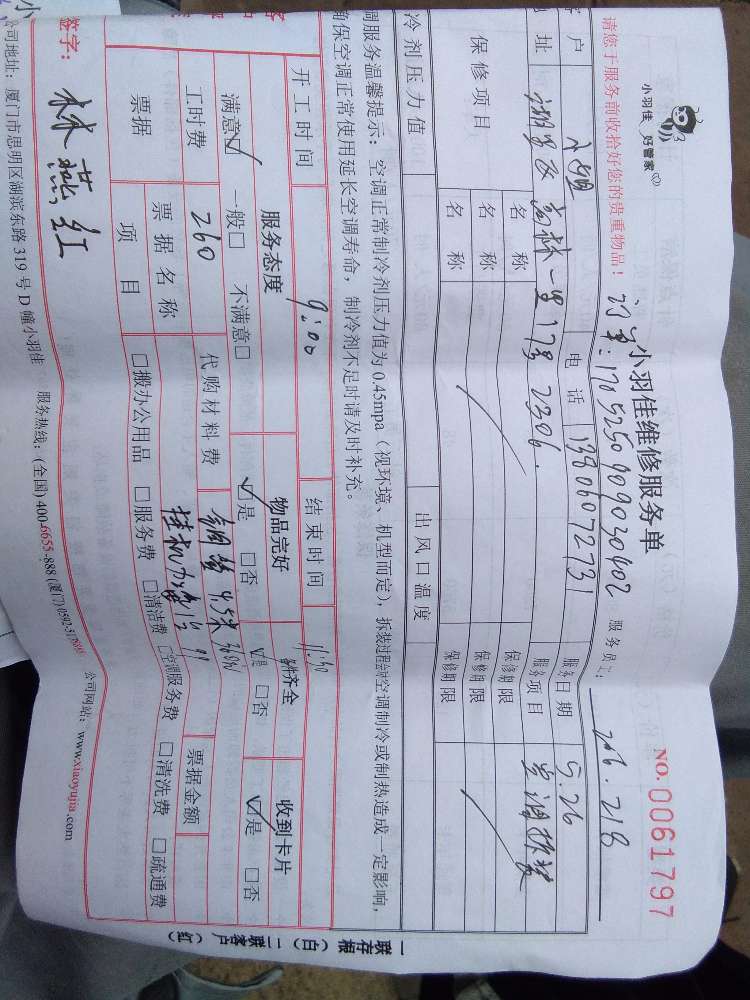 小羽佳 好管家
小羽佳维修服务单
NO.0061797
请您于服务前收拾好您的贵重物品!
订单:1705250909020402 服务员工: 206. 218
户 电话 13806072731 服务日期 5.26
址 湖里区 高林一里17号2306. 服务项目 空调拆装
保修项目 名称 保修期限
名称 保修期限
名称 保修期限
冷剂压力值 出风口温度
调服务温馨提示:空调正常制冷剂压力值为0.45mpa(视环境、机型而定),拆装过程会对空调制冷或制热造成一定影响,
确保空调正常使用延长空调寿命,制冷剂不足时请及时补充。
开工时间 9:00 结束时间 11:30
服务态度 物品完好 配件齐全 收到卡片
满意☑ 一般□ 不满意□ ☑是 □否 ☑是 □否 ☑是 □否
工时费 260 代购材料费 铜管4.5米
票据 票据名称 挂机加 票据金额
项目 □搬办公用品 □服务费 □清洁费 □空调服务费 □清洗费 □疏通费
签字: 林燕红
公司地址:厦门市思明区湖滨东路319号D幢小羽佳 服务热线:(全国)400-6655-888(厦门)0592-5 公司网站:www.xiaoyujia.com
一联存根(白)二联客户(红)